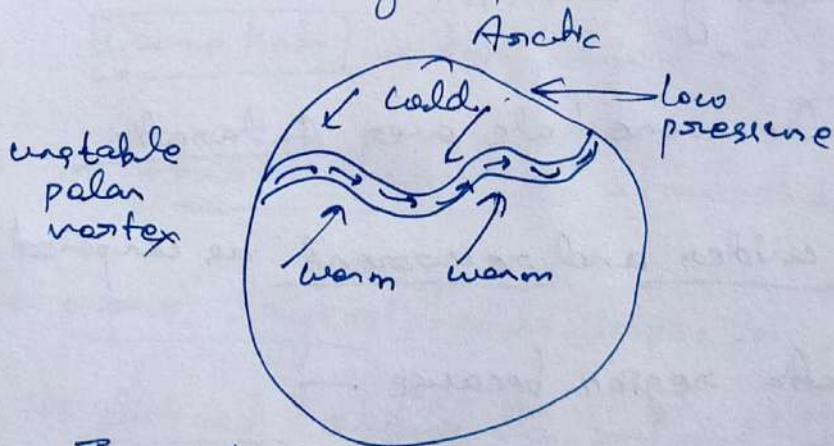 Arctic
cold
low
pressure
unstable
polar
vortex
warm warm